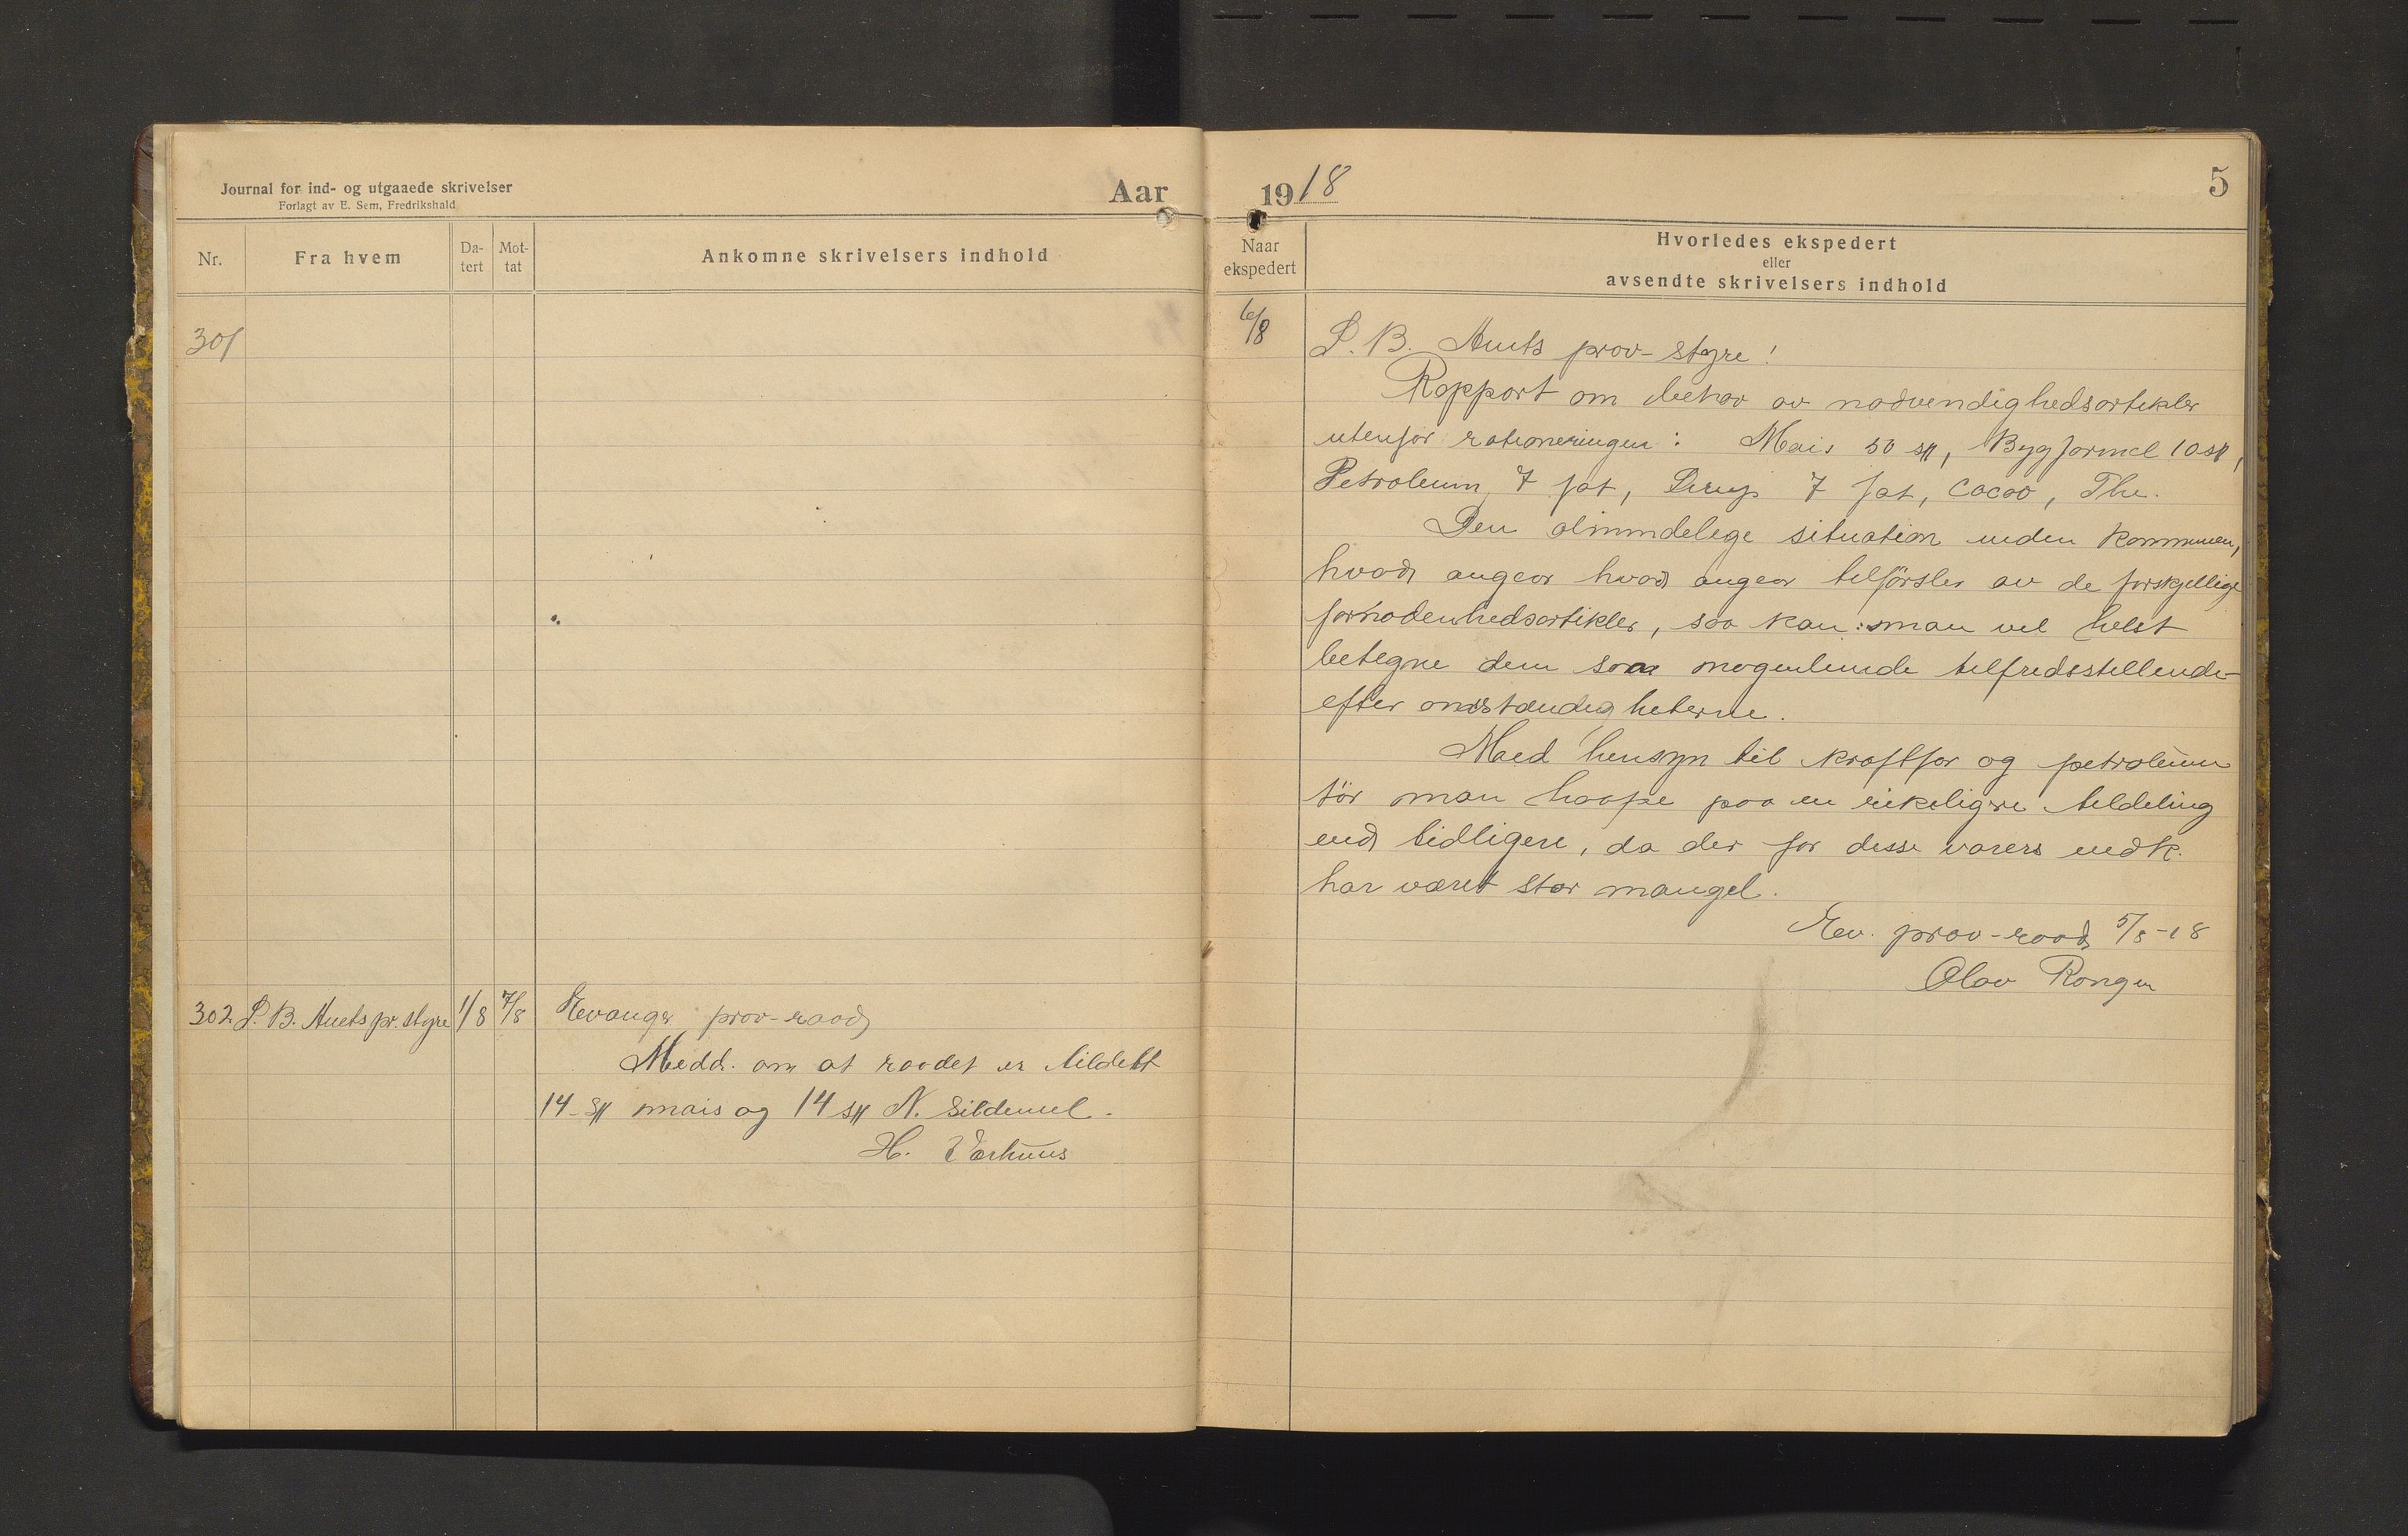 Journal for ind- og utgaaede skrivelser
Forlagt av E. Sem, Fredrikshald
Aar
Nr.
Fra hvem
Da-
tert
Mot-
tat
Ankomne skrivelsers indhold
301
302 S. B. Amts pr. styre 1/8 7/8 Evanger prov-raad
Medd. om at raadet er tildelt
14 sk mais og 14 sk N. Sildemel.
H. Værhuus
1918
5
Naar
ekspedert
Hvorledes ekspedert
eller
avsendte skrivelsers indhold
6/8 S. B. Amts prov-styre!
Rapport om behov av nødvendighedsartikler
utenfor rationeringen: Mais 50 sk, Bygformel 10 sk,
Petroleum 7 fat, Sirup 7 fat, Cacao, The.
Den almindelege situation inden kommunen,
hvad angaar hvad angaar tilförsler av de forskjellige
fornødenhedsartikler, saa kan man vel helst
betegne dem som nogenlunde tilfredsstillende
efter omstændigheterne.
Med hensyn til kraftfor og petroleum
tör man haape paa en rikeligere tildeling
end tidligere, da der for disse varers vedk.
har været stor mangel.
Ev. prov-raad 5/8-18
Olav Rongen